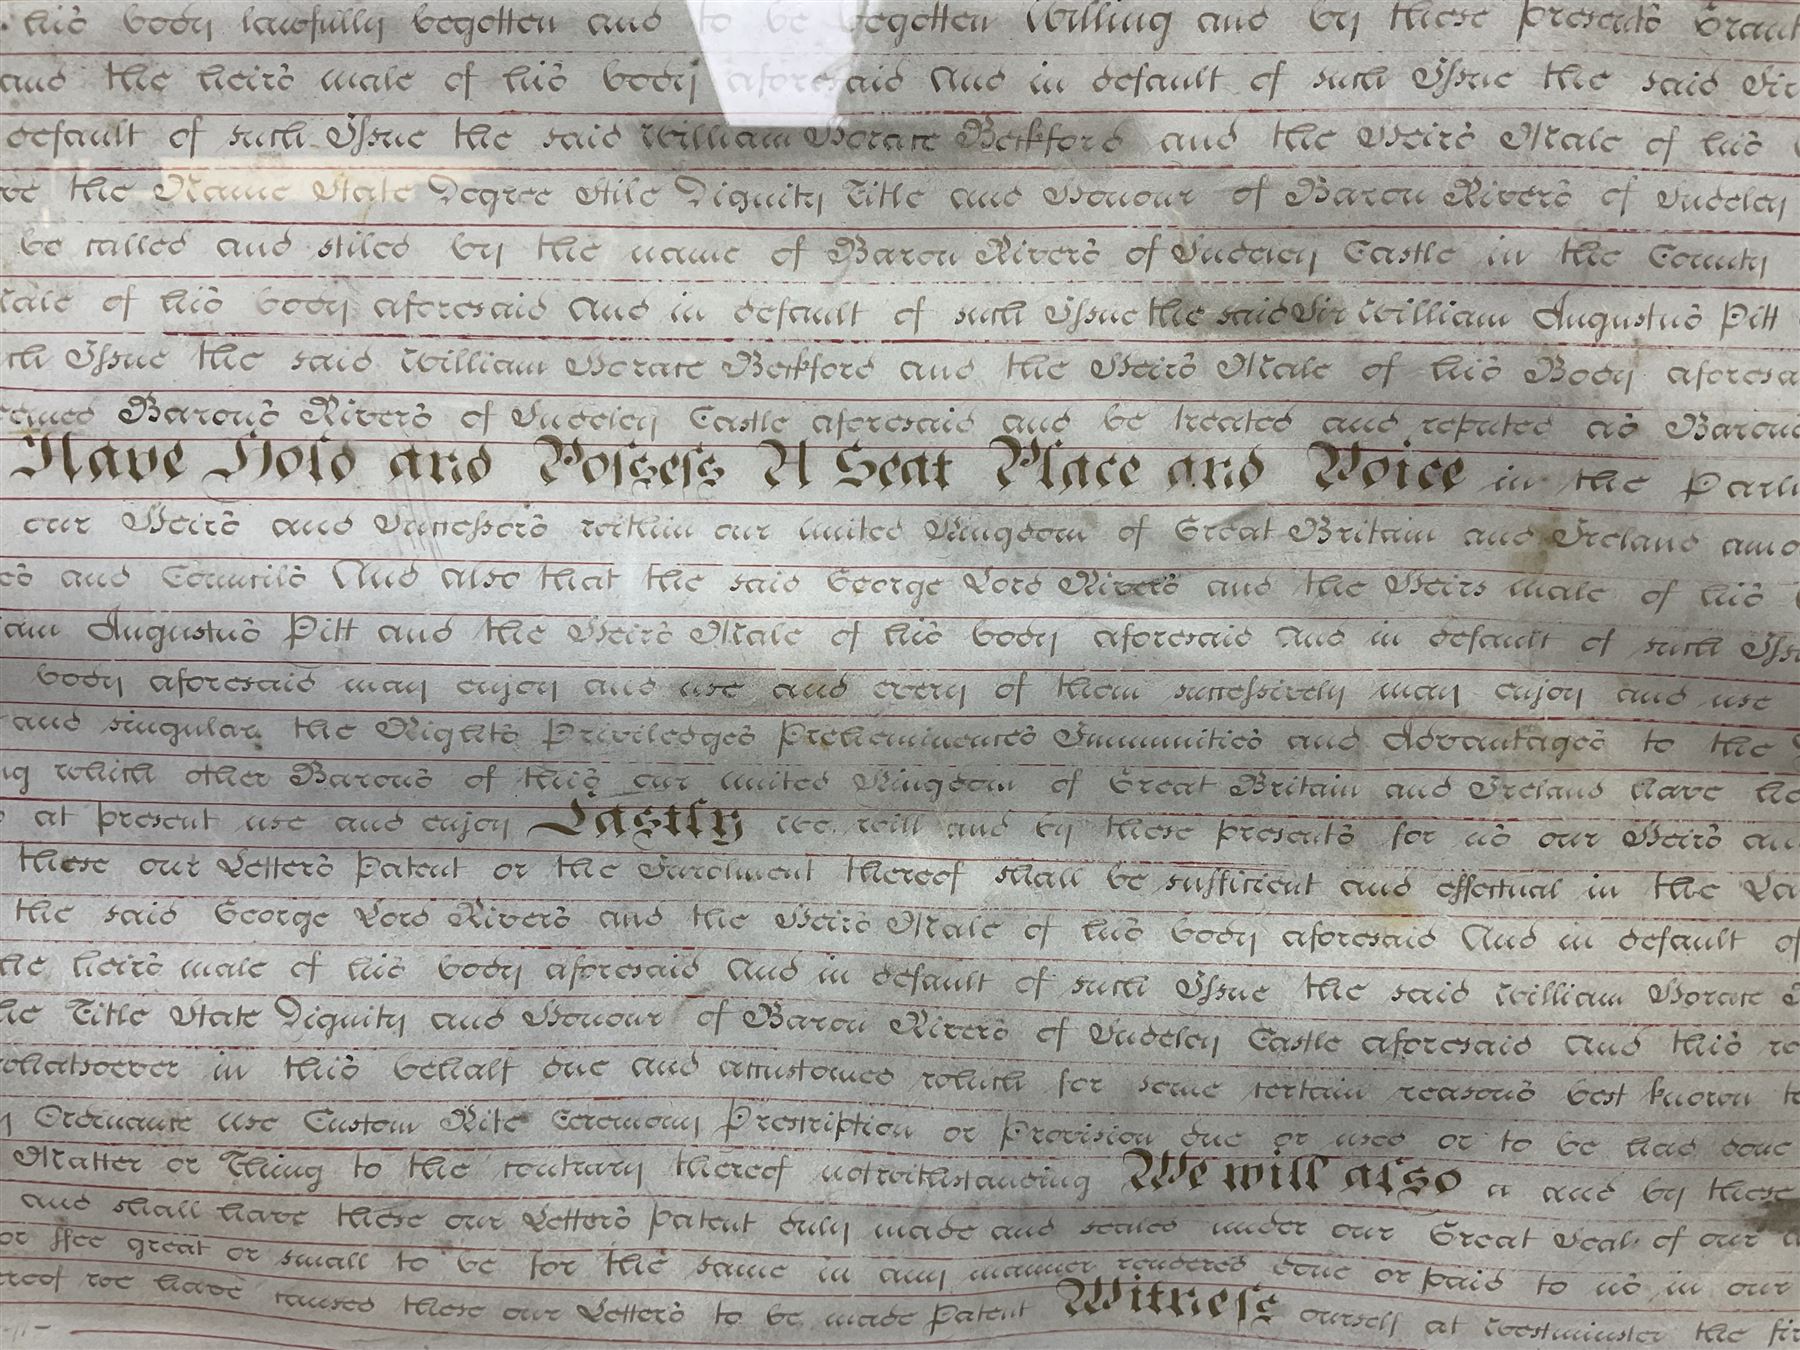 his body lawfully begotten and to be begotten Willing and by these presents Grant
and the heirs male of his body aforesaid And in default of such Issue the said Sir
default of such Issue the said William Horace Beckford and the Heirs Male of his
the Name State Degree Stile Dignity Title and Honour of Baron Rivers of Sudeley
be called and stiled by the name of Baron Rivers of Sudeley Castle in the County
Male of his body aforesaid And in default of such Issue the said Sir William Augustus Pitt
Issue the said William Horace Beckford and the Heirs Male of his Body
Barons Rivers of Sudeley Castle aforesaid and be treated and reputed as Barons
Have Hold and Possess A Seat Place and Voice in the
our Heirs and Successors within our united Kingdom of Great Britain and Ireland
and Councils And also that the said George Lord Rivers and the Heirs male of his
Augustus Pitt and the Heirs Male of his body aforesaid And in default of such
body aforesaid may enjoy and use and every of them successively may enjoy and use
and singular the Rights Priviledges Preheminences Immunities and Advantages to the
which other Barons of this our united Kingdom of Great Britain and Ireland have
at present use and enjoy Lastly we will and by these presents for us our Heirs
these our Letters Patent or the Enrolment thereof shall be sufficient and effectual in the
the said George Lord Rivers and the Heirs Male of his body aforesaid And in default of
the heirs male of his body aforesaid And in default of such Issue the said William Horace
the Title State Dignity and Honour of Baron Rivers of Sudeley Castle aforesaid And this
whatsoever in this behalf due and accustomed which for some certain reasons best known
Ordinance use Custom Rite Ceremony Prescription or Provision due or used or to be had done
Matter or Thing to the contrary thereof notwithstanding We will also a and by these
and shall have these our Letters patent duly made and sealed under our Great Seal of our
or ffee great or small to be for the same in any manner rendered done or paid to us in our
we have caused these our Letters to be made Patent Witness ourself at Westminster the